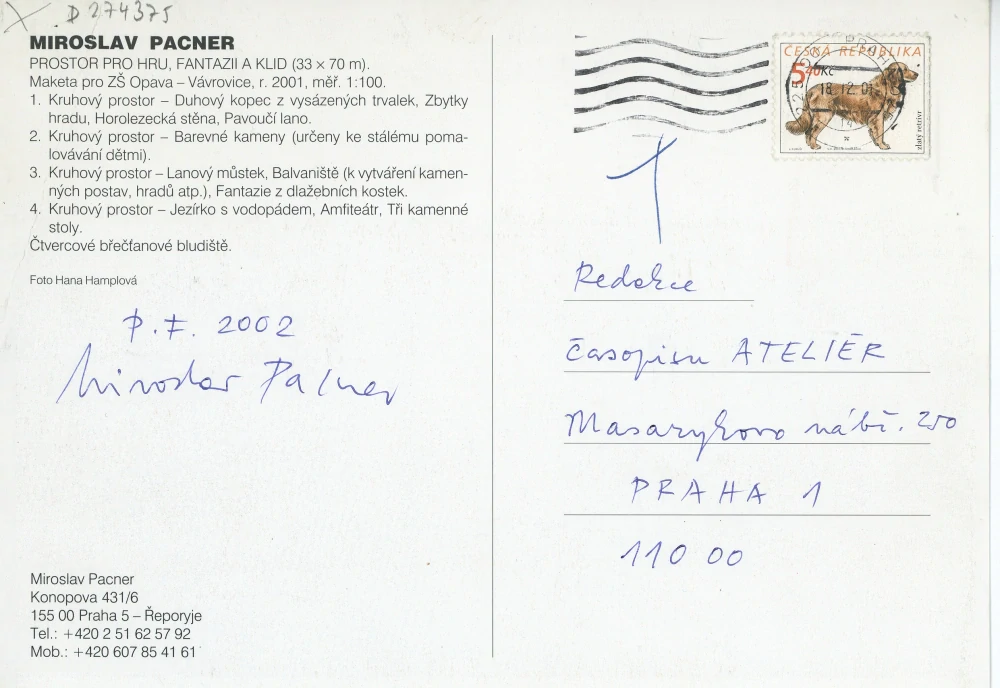 D 274375
MIROSLAV PACNER
PROSTOR PRO HRU, FANTAZII A KLID (33 × 70 m).
Maketa pro ZŠ Opava – Vávrovice, r. 2001, měř. 1:100.
1. Kruhový prostor – Duhový kopec z vysázených trvalek, Zbytky
hradu, Horolezecká stěna, Pavoučí lano.
2. Kruhový prostor – Barevné kameny (určeny ke stálému poma-
lovávání dětmi).
3. Kruhový prostor – Lanový můstek, Balvaniště (k vytváření kamen-
ných postav, hradů atp.), Fantazie z dlažebních kostek.
4. Kruhový prostor – Jezírko s vodopádem, Amfiteátr, Tři kamenné
stoly.
Čtvercové břečťanové bludiště.
Foto Hana Hamplová
P.F. 2002
Miroslav Pacner
Miroslav Pacner
Konopova 431/6
155 00 Praha 5 – Řeporyje
Tel.: +420 2 51 62 57 92
Mob.: +420 607 85 41 61
ČESKÁ REPUBLIKA
5,40 Kč
18.12.01
zlatý retrívr
Redakce
časopisu ATELIÉR
Masarykovo nábř. 250
PRAHA 1
110 00